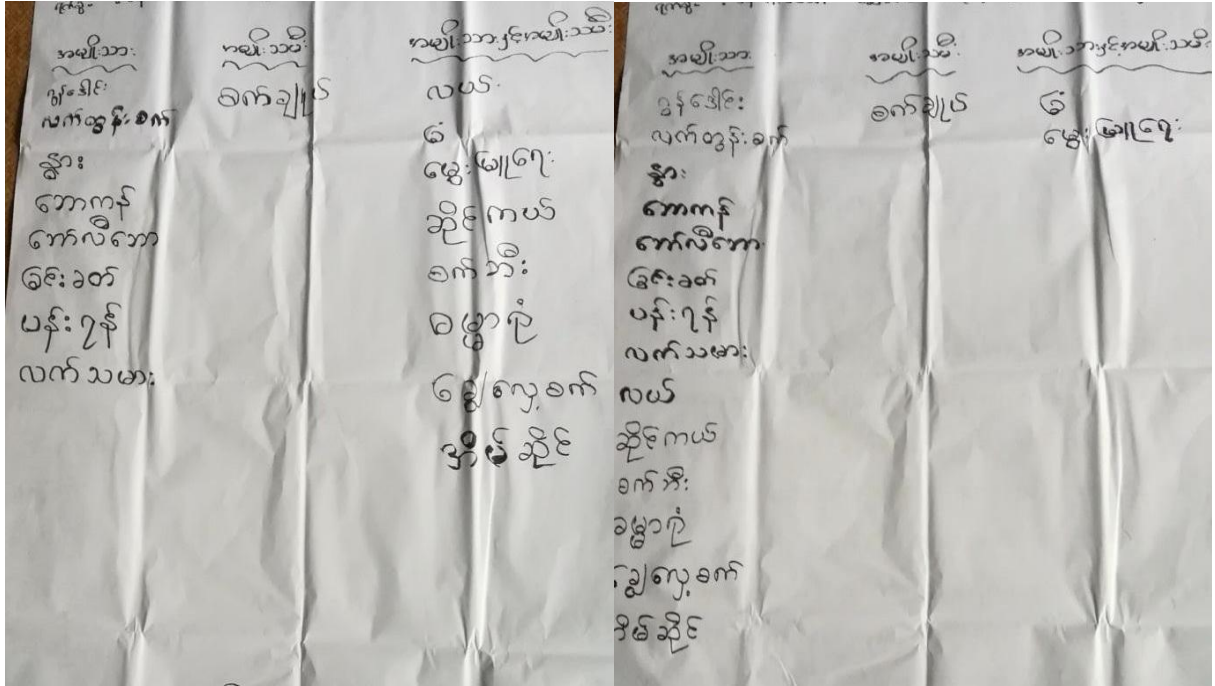 အမျိုးသား
ထွန်ဒေါင်း
လက်တွန်းစက်
နွား
ဘောကန်
ဘော်လီဘော
ခြင်းခတ်
ပန်းရန်
လက်သမား
အမျိုးသမီး
စက်ချုပ်
အမျိုးသားနှင့်အမျိုးသမီး
လယ်
ခြံ
မွေးမြူရေး
ဆိုင်ကယ်
စက်ဘီး
ဓမ္မာရုံ
ခြွေလှေ့စက်
အိမ်ဆိုင်
အမျိုးသား
ထွန်ဒေါင်း
လက်တွန်းစက်
နွား
ဘောကန်
ဘော်လီဘော
ခြင်းခတ်
ပန်းရန်
လက်သမား
လယ်
ဆိုင်ကယ်
စက်ဘီး
ဓမ္မာရုံ
ခြွေလှေ့စက်
အိမ်ဆိုင်
အမျိုးသမီး
စက်ချုပ်
အမျိုးသားနှင့်အမျိုးသမီး
ခြံ
မွေးမြူရေး